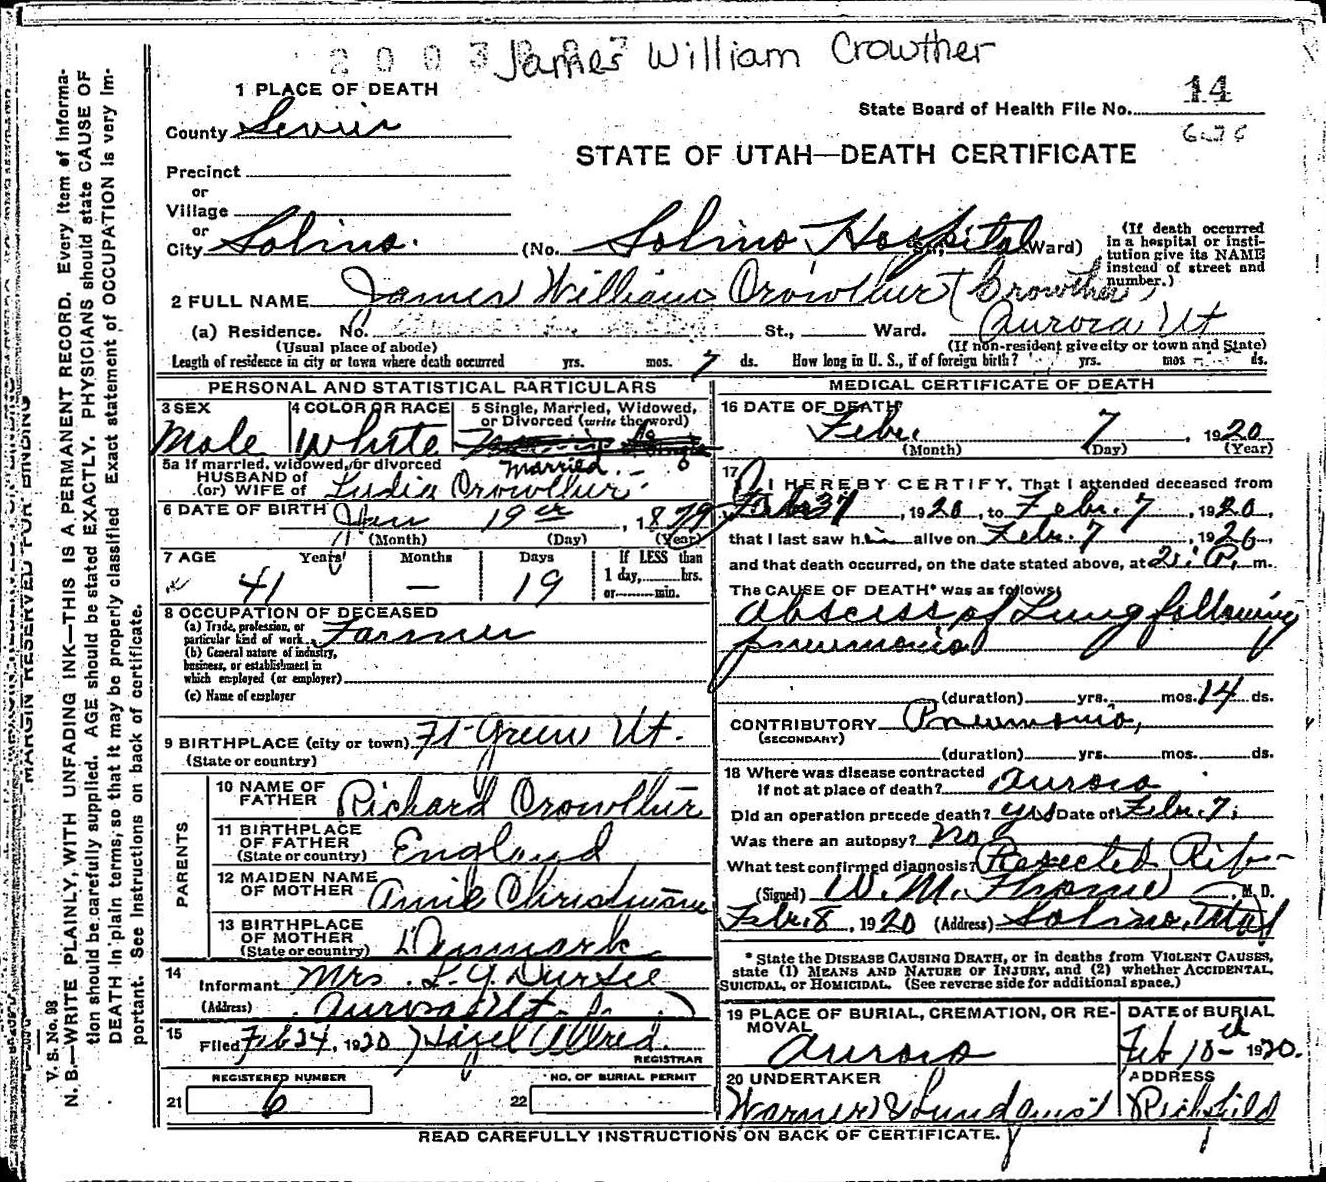 James William Crowther
1 PLACE OF DEATH
State Board of Health File No. 14
County Sevier
STATE OF UTAH—DEATH CERTIFICATE
Precinct
or
Village
or
City Salina. (No. Salina Hospital St., Ward)
(If death occurred
in a hospital or insti-
tution give its NAME
instead of street and
number.)
2 FULL NAME James William Crowthur (Crowther)
(a) Residence. No. St., Ward. Aurora Ut
(Usual place of abode) (If non-resident give city or town and State)
Length of residence in city or town where death occurred yrs. mos. 7 ds. How long in U. S., if of foreign birth? yrs. mos ds.
PERSONAL AND STATISTICAL PARTICULARS
3 SEX Male
4 COLOR OR RACE White
5 Single, Married, Widowed,
or Divorced (write the word)
Married.
5a If married, widowed, or divorced
HUSBAND of
(or) WIFE of Lydia Crowthur
6 DATE OF BIRTH Jan 19 1879
(Month) (Day) (Year)
7 AGE Years Months Days If LESS than
41 — 19 1 day, hrs.
or min.
8 OCCUPATION OF DECEASED
(a) Trade, profession, or
particular kind of work Farmer
(b) General nature of industry,
business, or establishment in
which employed (or employer)
(c) Name of employer
9 BIRTHPLACE (city or town) Ft Green Ut.
(State or country)
PARENTS
10 NAME OF
FATHER Richard Crowthur
11 BIRTHPLACE
OF FATHER
(State or country) England
12 MAIDEN NAME
OF MOTHER Annie
13 BIRTHPLACE
OF MOTHER
(State or country) Denmark
14
Informant Mrs. L. Y. Durfee
(Address) Aurora Ut
15 Filed Feb 24, 1920 Hazel Allred.
REGISTRAR
REGISTERED NUMBER NO. OF BURIAL PERMIT
21 6 22
MEDICAL CERTIFICATE OF DEATH
16 DATE OF DEATH
Feb. 7, 1920
(Month) (Day) (Year)
17
I HEREBY CERTIFY, That I attended deceased from
, 1920, to Feb. 7, 1920,
that I last saw him alive on Feb. 7, 1920,
and that death occurred, on the date stated above, at P. m.
The CAUSE OF DEATH* was as follows:
Abscess of Lung following
pneumonia
(duration) yrs. mos. 14 ds.
CONTRIBUTORY Pneumonia,
(SECONDARY)
(duration) yrs. mos. ds.
18 Where was disease contracted
If not at place of death? Aurora
Did an operation precede death? yes Date of Feb. 7,
Was there an autopsy? No
What test confirmed diagnosis? Resected Rib—
(Signed) W. M. , M. D.
Feb. 8, 1920 (Address) Salina, Utah
* State the DISEASE CAUSING DEATH, or in deaths from VIOLENT CAUSES,
state (1) MEANS AND NATURE OF INJURY, and (2) whether ACCIDENTAL,
SUICIDAL, or HOMICIDAL. (See reverse side for additional space.)
19 PLACE OF BURIAL, CREMATION, OR RE-
MOVAL
Aurora
DATE of BURIAL
Feb 10th 1920.
20 UNDERTAKER
Warner & Lundquist
ADDRESS
Richfield
READ CAREFULLY INSTRUCTIONS ON BACK OF CERTIFICATE.
MARGIN RESERVED FOR BINDING
V. S. No. 98
N. B.—WRITE PLAINLY, WITH UNFADING INK—THIS IS A PERMANENT RECORD. Every item of informa-
tion should be carefully supplied. AGE should be stated EXACTLY. PHYSICIANS should state CAUSE OF
DEATH in plain terms, so that it may be properly classified. Exact statement of OCCUPATION is very im-
portant. See instructions on back of certificate.